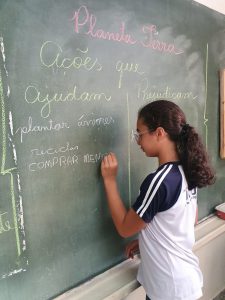 Planeta Terra
Ações que
Ajudam Prejudicam
plantar árvores
reciclar
COMPRAR MEN